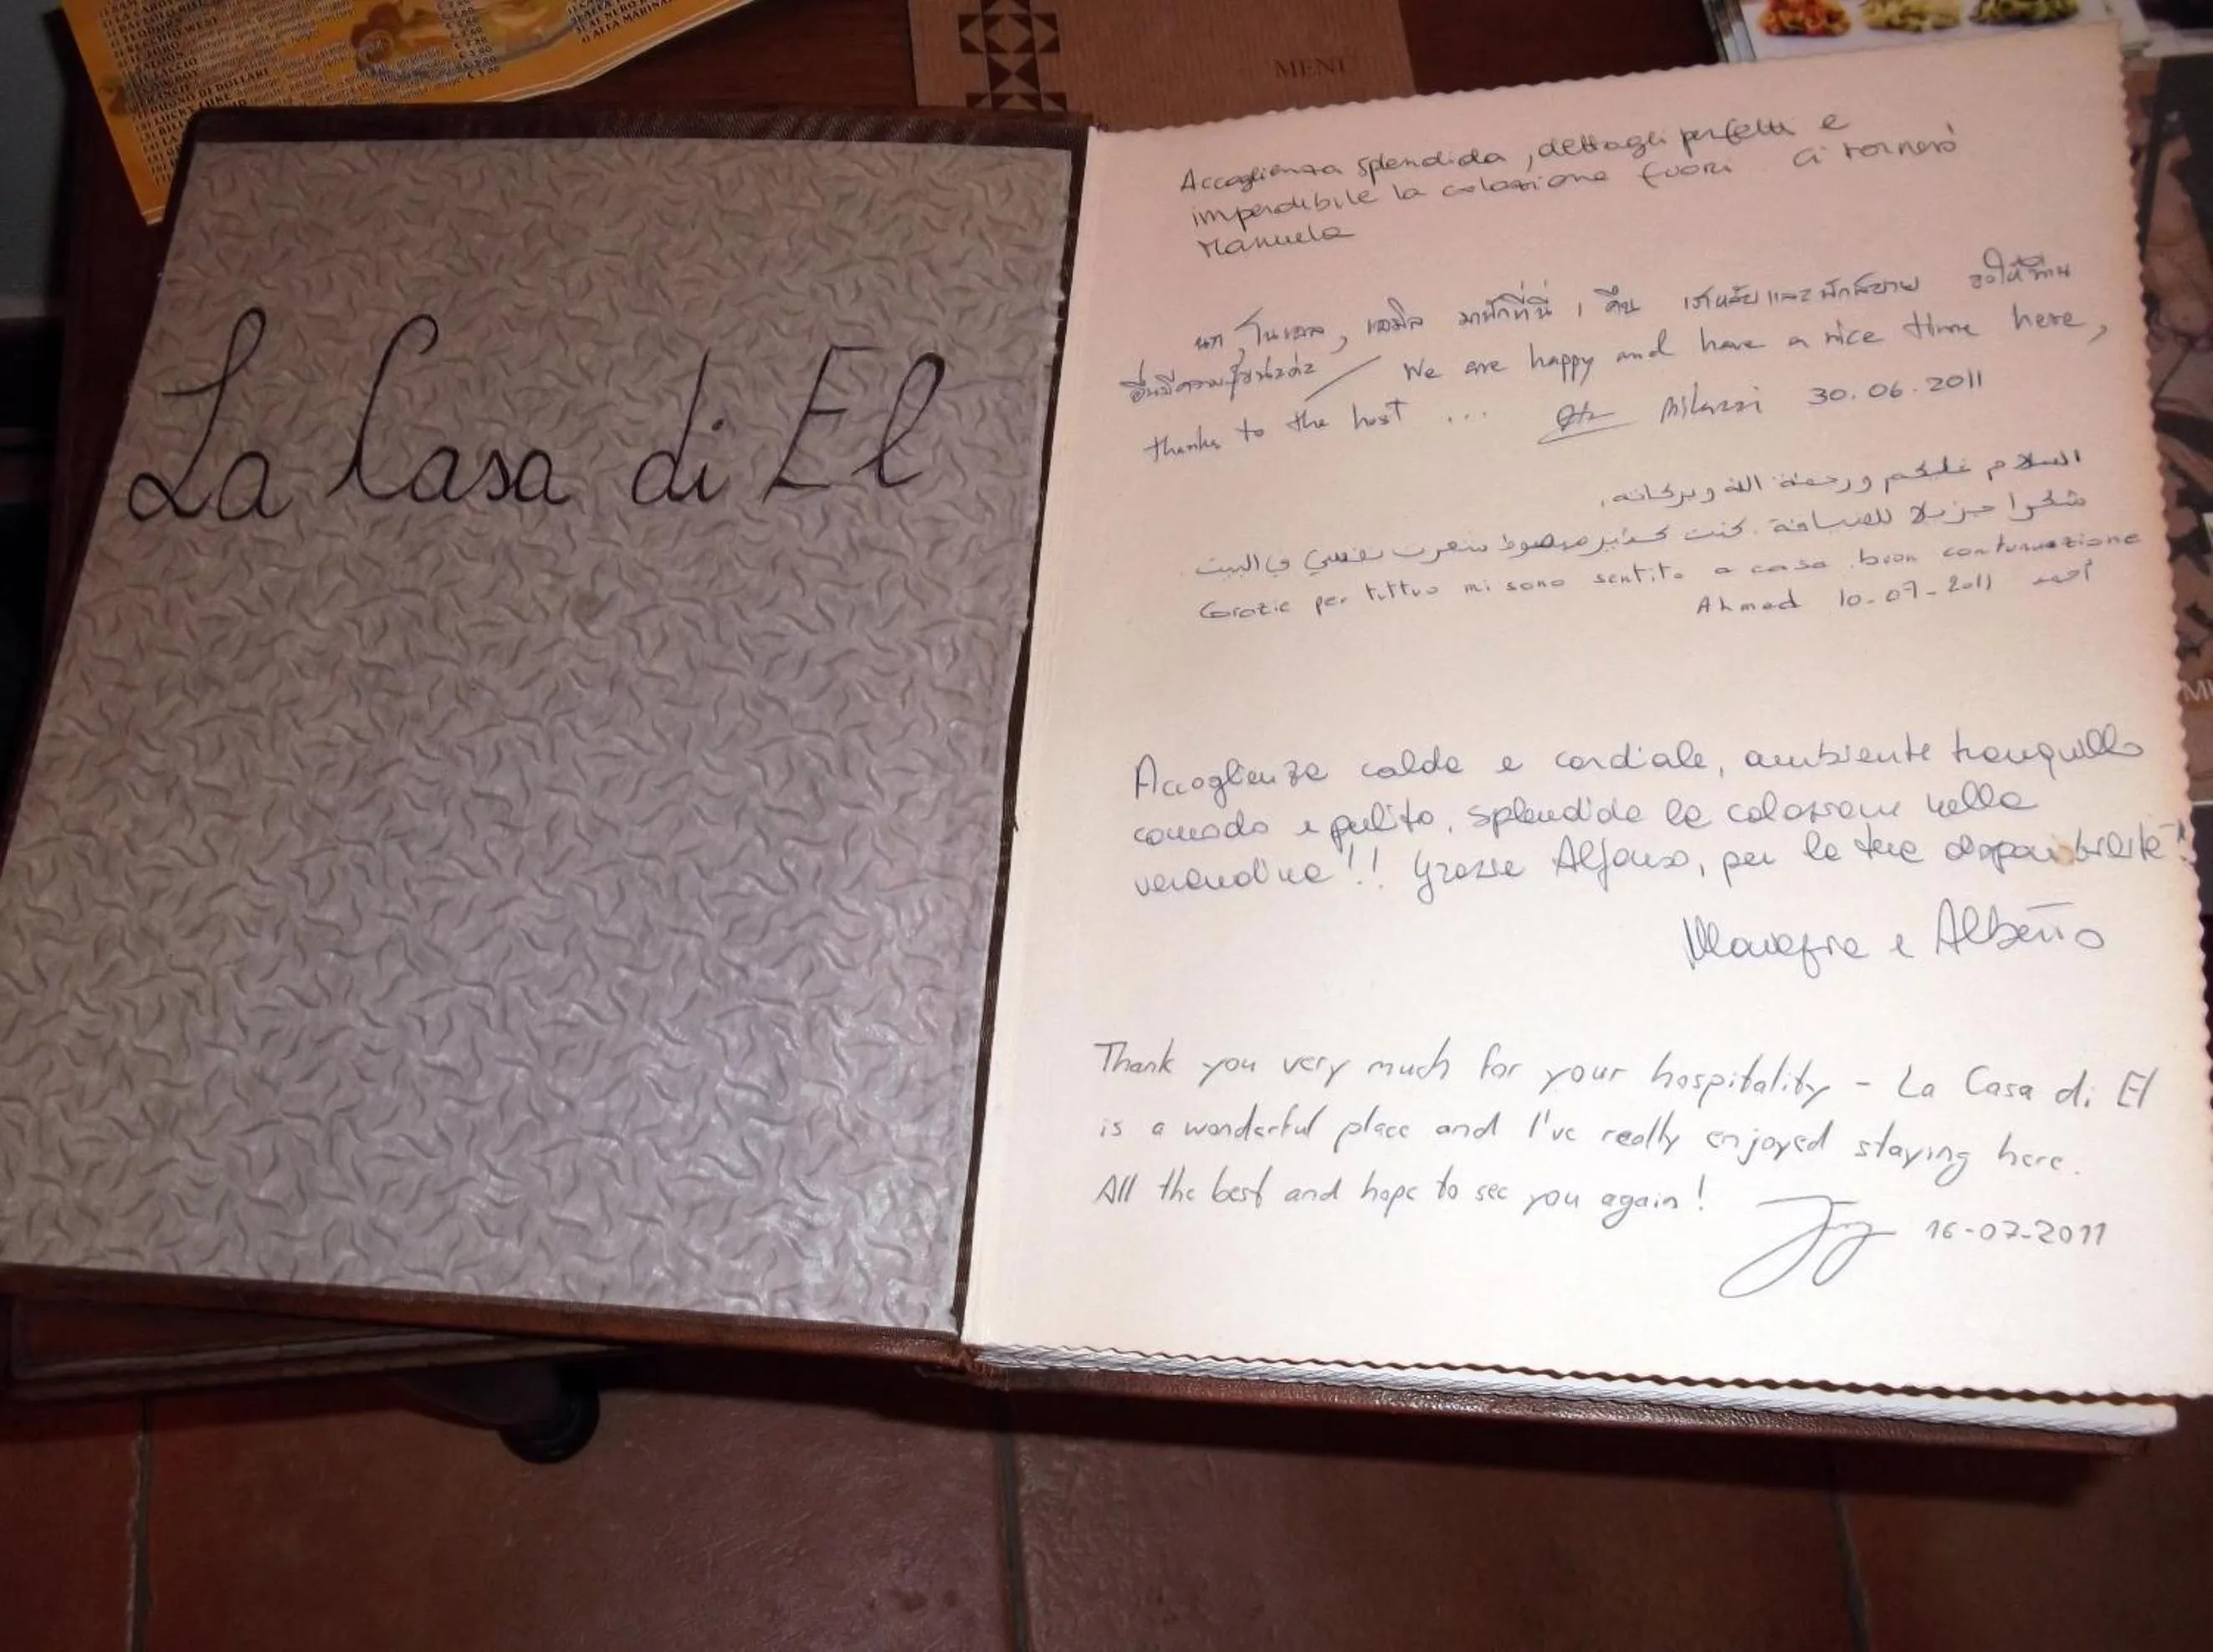 La Casa di El
MENU
Accoglienza splendida, dettagli perfetti e
imperdibile la colazione fuori ci tornerò
Manuela
นก, โนเอล, เอมิล มาพักที่นี่ 1 คืน และพักสบาย ขอให้ท่าน
We are happy and have a nice time here,
thanks to the host ... Milazzi 30.06.2011
السلام عليكم ورحمة الله وبركاته.
شكرا جزيلا للضيافة. كنت كثير مبصوط شعرت نفسي في البيت
Grazie per tuttuo mi sono sentito a casa. buon contunuazione
Ahmed 10-07-2011 أحمد
Accoglienza calda e cordiale, ambiente tranquillo
comodo e pulito, splendida la colazione nella
verandina!! Grazie Alfonso, per la tua disponibilità!
e Alberto
Thank you very much for your hospitality - La Casa di El
is a wonderful place and I've really enjoyed staying here.
All the best and hope to see you again!
16-07-2011